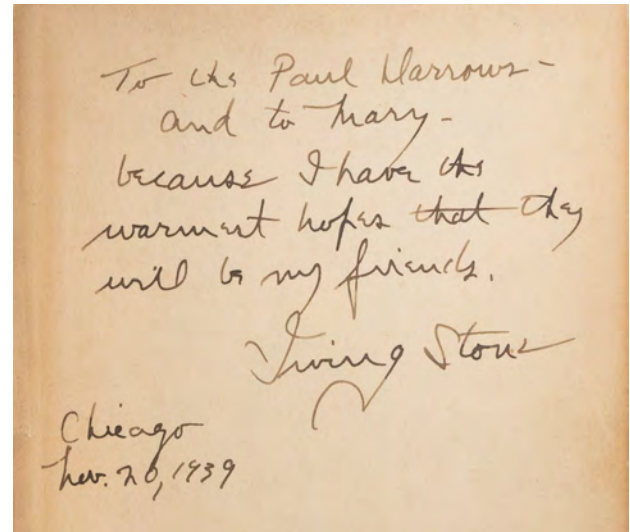 To the Paul Darrows -
and to Mary -
because I have the
warmest hopes that they
will be my friends.
Irving Stone
Chicago
Nov. 20, 1939